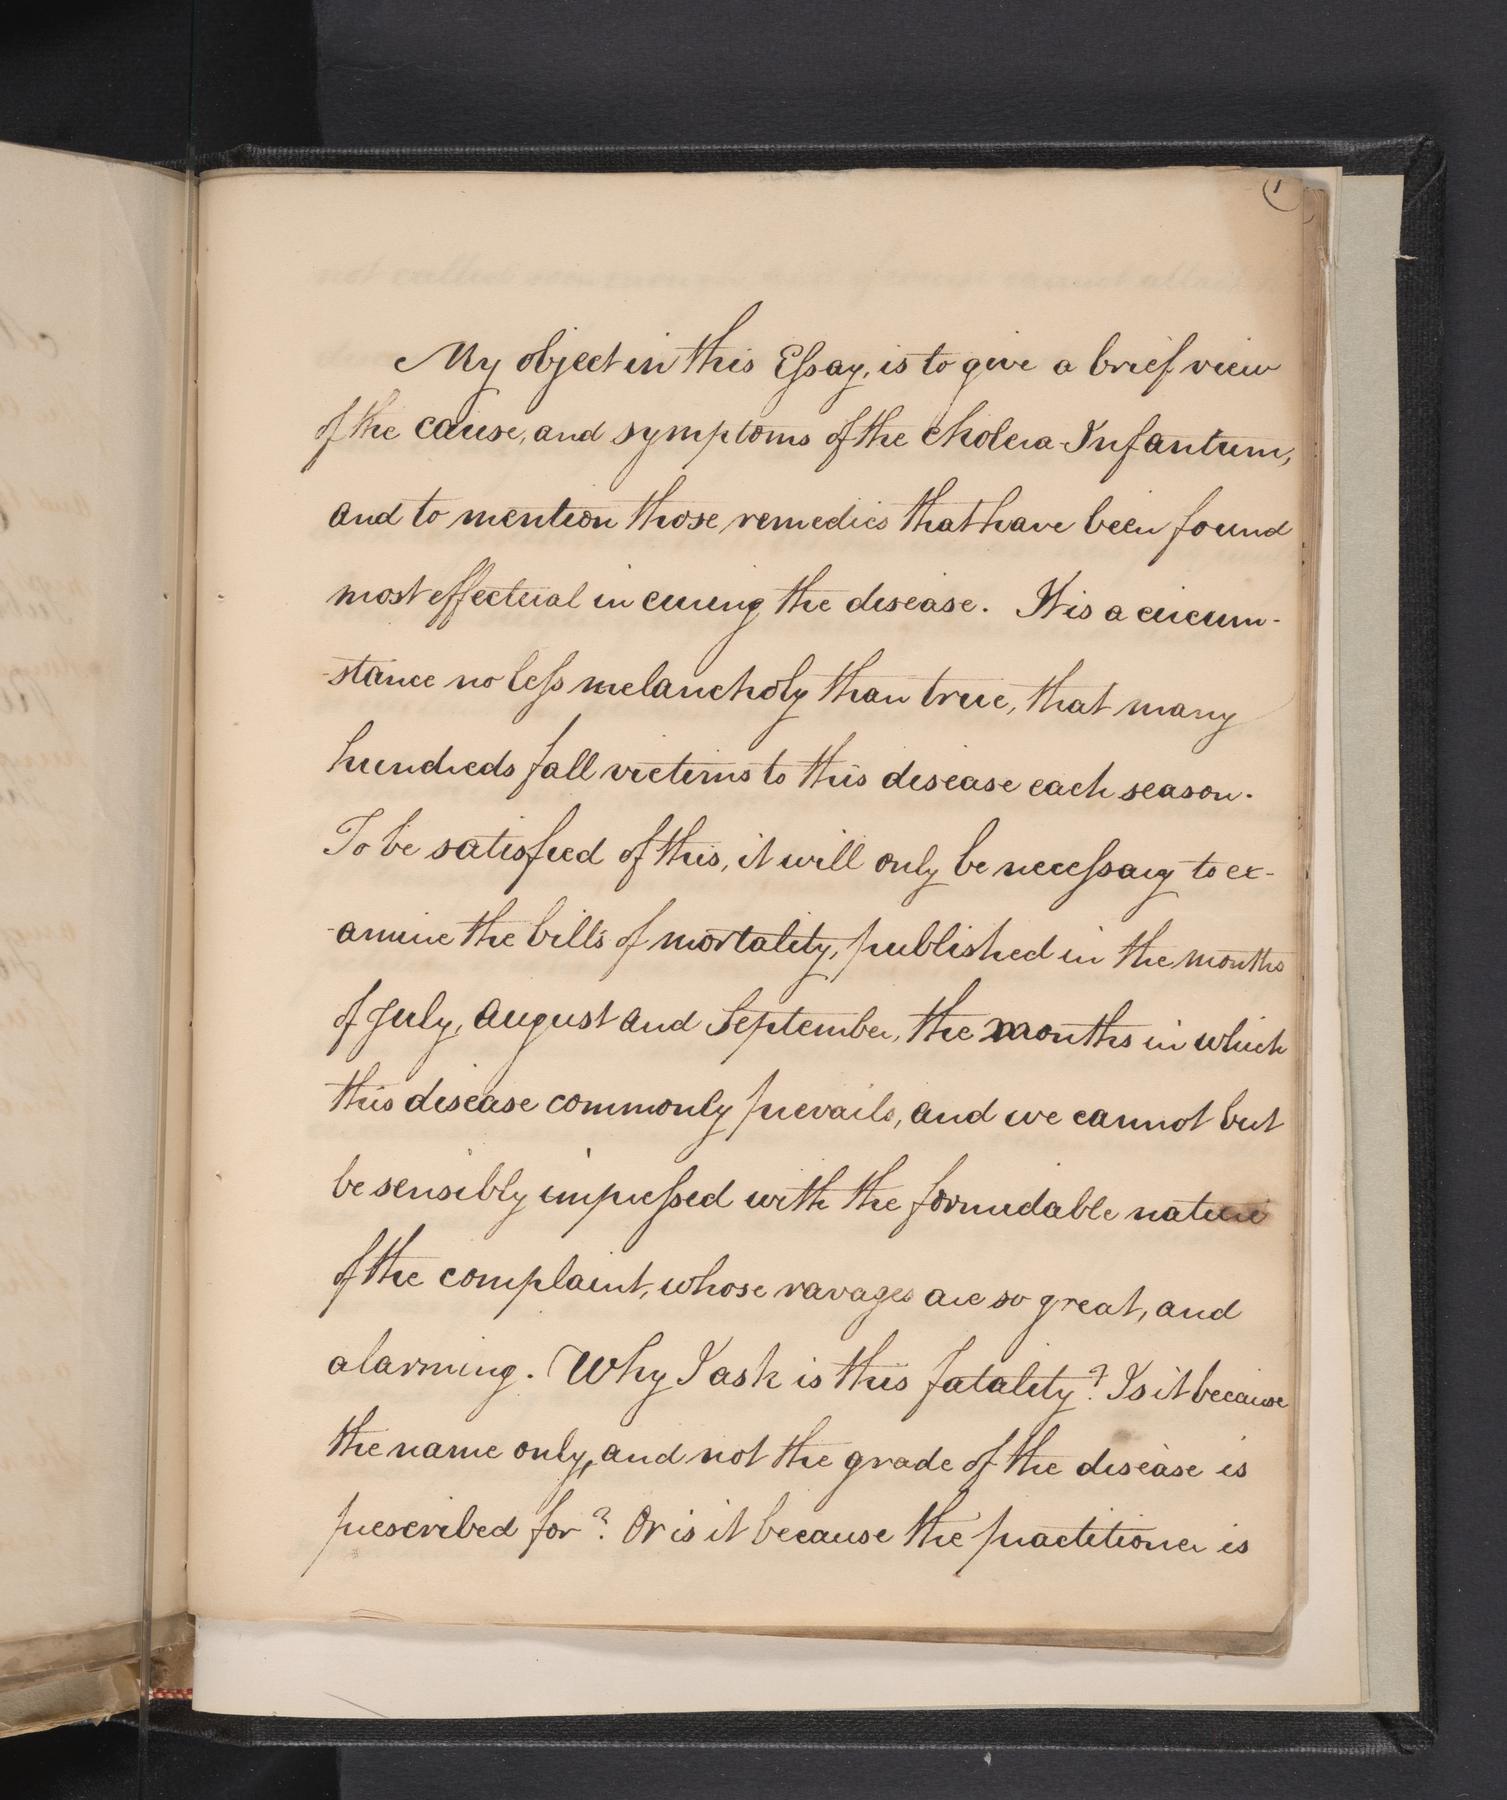 1
My object in this Essay, is to give a brief view
of the cause, and symptoms of the Cholera-Infantum,
and to mention those remedies that have been found
most effectual in curing the disease. It is a circum-
-stance no less melancholy than true, that many
hundreds fall victims to this disease each season.
To be satisfied of this, it will only be necessary to ex-
-amine the bills of mortality, published in the months
of July, August and September, the months in which
this disease commonly prevails, and we cannot but
be sensibly impressed with the formidable nature
of the complaint, whose ravages are so great, and
alarming. Why I ask is this fatality? Is it because
the name only, and not the grade of the disease is
prescribed for? Or is it because the practitioner is